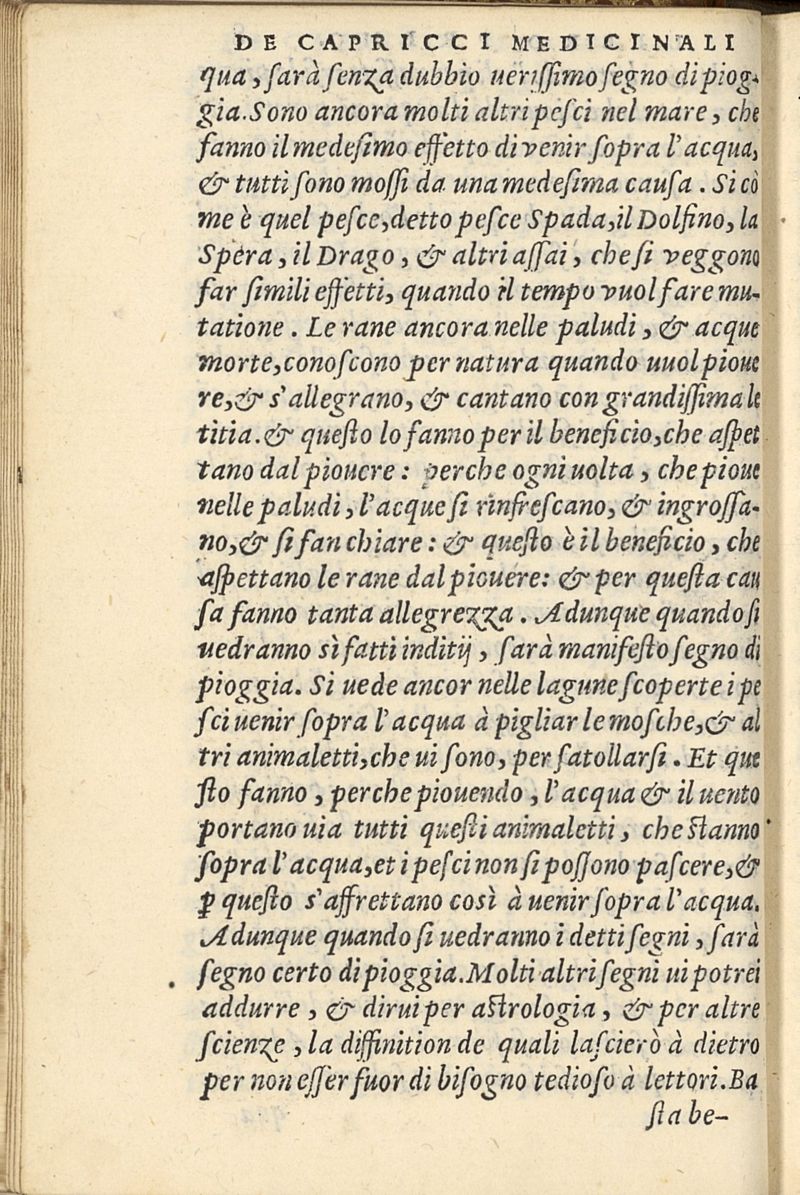 DE CAPRICCI MEDICINALI
qua, ſarà ſenza dubbio ueriſſimo ſegno di piog-
gia. Sono ancora molti altri peſci nel mare, che
fanno il medeſimo effetto di venir ſopra l'acqua,
& tutti ſono moſſi da una medeſima cauſa. Si cō
me è quel peſce, detto peſce Spada, il Dolfino, la
Spera, il Drago, & altri aſſai, che ſi veggono
far ſimili effetti, quando il tempo vuol fare mu-
tatione. Le rane ancora nelle paludi, & acque
morte, conoſcono per natura quando uuol pioue
re, & s'allegrano, & cantano con grandiſſima le
titia. & queſto lo fanno per il beneficio, che aſpet
tano dal piouere: perche ogni uolta, che pioue
nelle paludi, l'acque ſi rinfreſcano, & ingroſſa-
no, & ſi fan chiare: & queſto è il beneficio, che
aſpettano le rane dal piouere: & per queſta cau
ſa fanno tanta allegrezza. Adunque quando ſi
uedranno sì fatti inditij, ſarà manifeſto ſegno di
pioggia. Si uede ancor nelle lagune ſcoperte i pe
ſci uenir ſopra l'acqua à pigliar le moſche, & al
tri animaletti, che ui ſono, per ſatollarſi. Et que
ſto fanno, perche piouendo, l'acqua & il uento
portano uia tutti queſti animaletti, che ſtanno
ſopra l'acqua, et i peſci non ſi poſſono paſcere, &
ꝑ queſto s'affrettano così à uenir ſopra l'acqua.
Adunque quando ſi uedranno i detti ſegni, ſarà
ſegno certo di pioggia. Molti altri ſegni ui potrei
addurre, & dirui per aſtrologia, & per altre
ſcienze, la diffinition de quali laſcierò à dietro
per non eſſer fuor di biſogno tedioſo à lettori. Ba
ſta be-